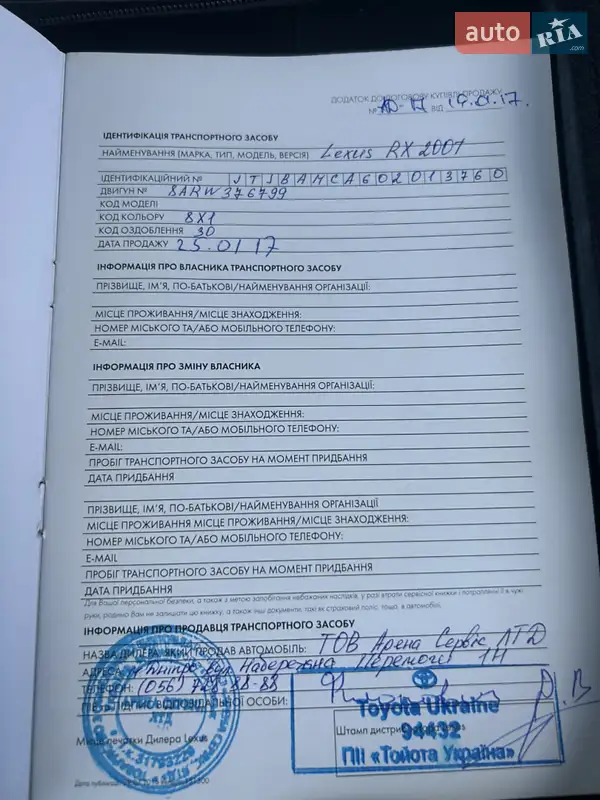 auto RIA .com
ДОДАТОК ДО ДОГОВОРУ КУПІВЛІ-ПРОДАЖУ
№ ВІД 19.01.17.
ІДЕНТИФІКАЦІЯ ТРАНСПОРТНОГО ЗАСОБУ
НАЙМЕНУВАННЯ (МАРКА, ТИП, МОДЕЛЬ, ВЕРСІЯ) Lexus RX 200t
ІДЕНТИФІКАЦІЙНИЙ № JTJBAMCA602013760
ДВИГУН № 8ARW376799
КОД МОДЕЛІ
КОД КОЛЬОРУ 8X1
КОД ОЗДОБЛЕННЯ 30
ДАТА ПРОДАЖУ 25.01 17
ІНФОРМАЦІЯ ПРО ВЛАСНИКА ТРАНСПОРТНОГО ЗАСОБУ
ПРІЗВИЩЕ, ІМ'Я, ПО-БАТЬКОВІ/НАЙМЕНУВАННЯ ОРГАНІЗАЦІЇ:
МІСЦЕ ПРОЖИВАННЯ/МІСЦЕ ЗНАХОДЖЕННЯ:
НОМЕР МІСЬКОГО ТА/АБО МОБІЛЬНОГО ТЕЛЕФОНУ:
E-MAIL:
ІНФОРМАЦІЯ ПРО ЗМІНУ ВЛАСНИКА
ПРІЗВИЩЕ, ІМ'Я, ПО-БАТЬКОВІ/НАЙМЕНУВАННЯ ОРГАНІЗАЦІЇ:
МІСЦЕ ПРОЖИВАННЯ/МІСЦЕ ЗНАХОДЖЕННЯ:
НОМЕР МІСЬКОГО ТА/АБО МОБІЛЬНОГО ТЕЛЕФОНУ:
E-MAIL:
ПРОБІГ ТРАНСПОРТНОГО ЗАСОБУ НА МОМЕНТ ПРИДБАННЯ
ДАТА ПРИДБАННЯ
ПРІЗВИЩЕ, ІМ'Я, ПО-БАТЬКОВІ/НАЙМЕНУВАННЯ ОРГАНІЗАЦІЇ
МІСЦЕ ПРОЖИВАННЯ МІСЦЕ ПРОЖИВАННЯ/МІСЦЕ ЗНАХОДЖЕННЯ:
НОМЕР МІСЬКОГО ТА/АБО МОБІЛЬНОГО ТЕЛЕФОНУ:
E-MAIL
ПРОБІГ ТРАНСПОРТНОГО ЗАСОБУ НА МОМЕНТ ПРИДБАННЯ
ДАТА ПРИДБАННЯ
Для Вашої персональної безпеки, а також з метою запобігання небажаних наслідків, у разі втрати сервісної книжки і потрапляння її в чужі
руки, радимо Вам не залишати цю книжку, а також інші документи, такі як страховий поліс, тощо, в автомобілі.
ІНФОРМАЦІЯ ПРО ПРОДАВЦЯ ТРАНСПОРТНОГО ЗАСОБУ
НАЗВА ДИЛЕРА, ЯКИЙ ПРОДАВ АВТОМОБІЛЬ: ТОВ Арена Сервіс ЛТД
АДРЕСА: м Дніпро, вул Набережна Перемоги 1Н
ТЕЛЕФОН: (056) 88-88
ПІДПИС ВІДПОВІДАЛЬНОЇ ОСОБИ:
Toyota Ukraine
94432
Штамп
ПІІ «Тойота Україна»
ЛТД
Місце печатки Дилера Lexus